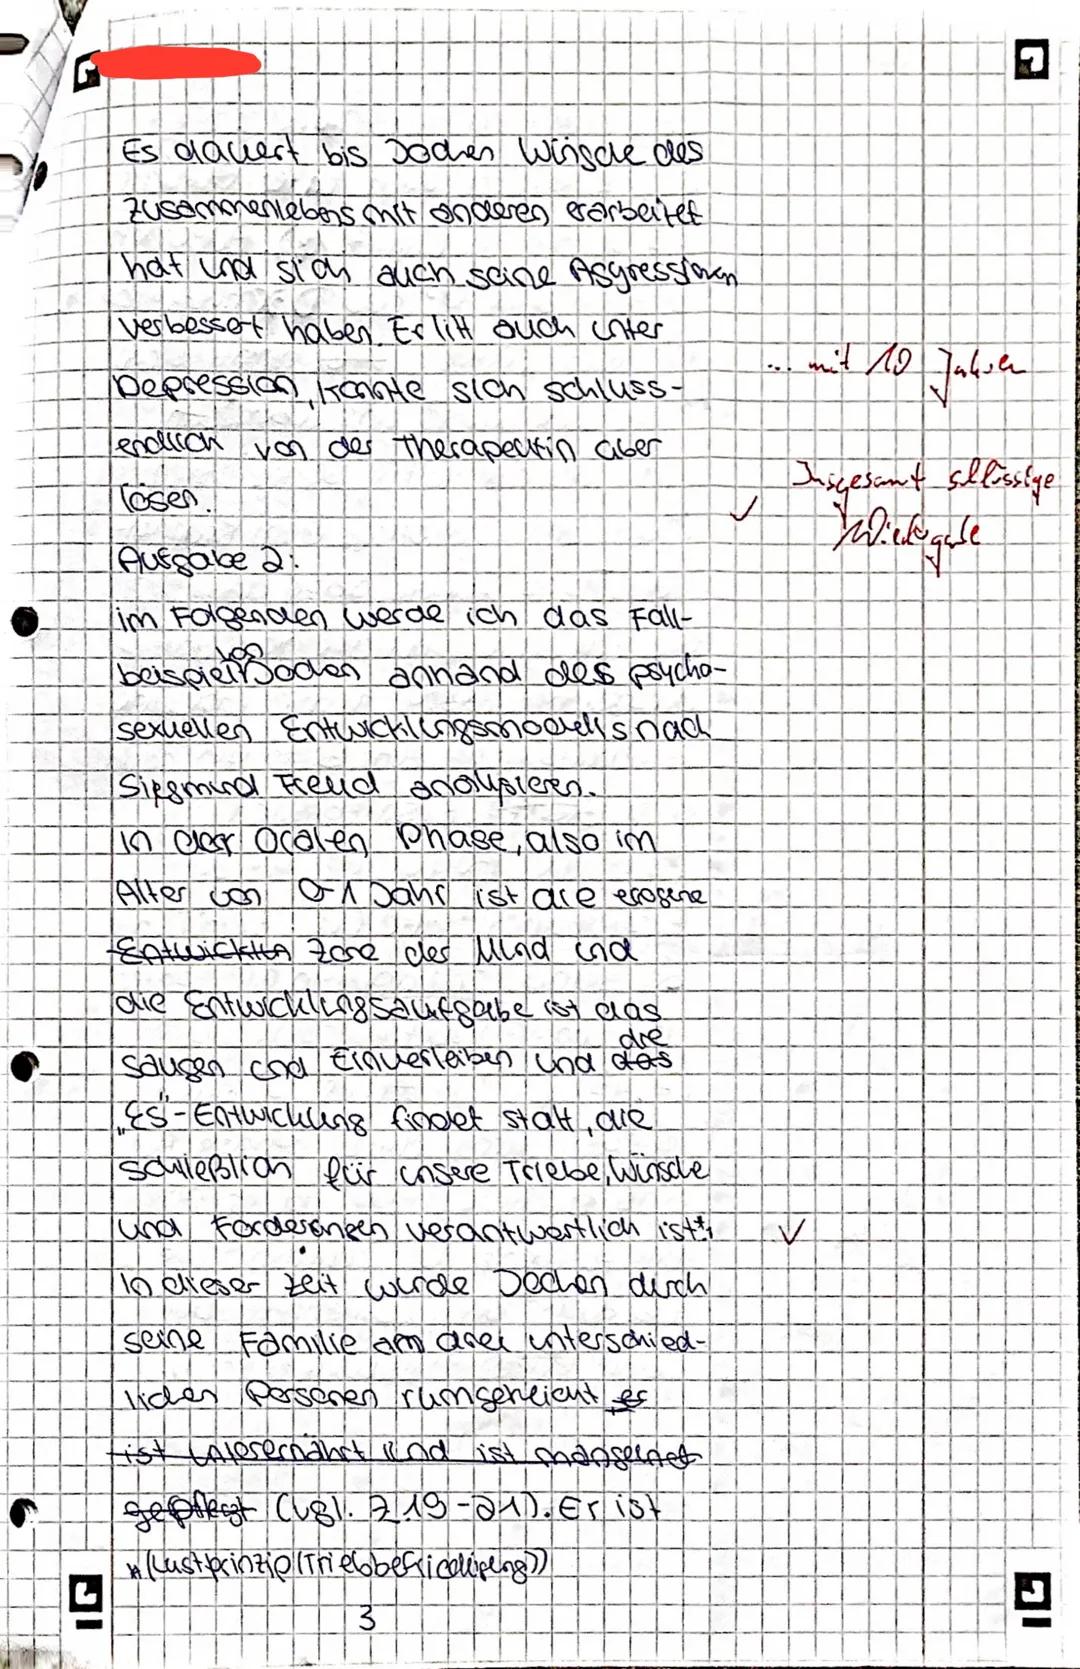 Es dauert bis Jochen Wünsche des
zusammenlebens mit anderen erarbeitet
hat und sich auch seine Aggressionen
verbessert haben. Er litt auch unter
... mit 10 Jahren
Depression, konnte sich schluss-
endlich von der Therapeutin aber
lösen.
✓ Insgesamt schlüssige
Wiedergabe
Aufgabe 2:
im Folgenden werde ich das Fall-
beispiel von Jochen anhand des psycho-
sexuellen Entwicklungsmodells nach
Siegmund Freud analysieren.
In der Oralen Phase, also im
Alter von 0-1 Jahr ist die erogene
~~Entwickln~~ Zone der Mund und
die Entwicklungsaufgabe ist das
saugen und Einverleiben und ~~das~~ die
„ES"-Entwicklung findet statt, die
schließlich für unsere Triebe, Wünsche
und Forderungen verantwortlich ist*. ✓
In dieser Zeit wurde Jochen durch
seine Familie an drei unterschied-
lichen Personen rumgereicht ~~er~~
~~ist unterernährt und ist mangelhaft~~
~~gepflegt~~ (vgl. Z.19-21). Er ist
*(Lustprinzip(Triebbefriedigung))
3